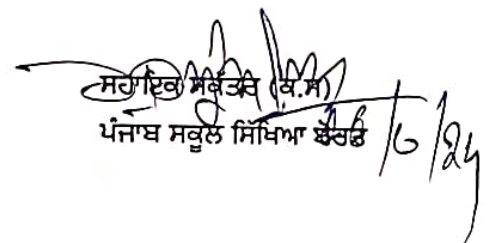 ਸਹਾਇਕ ਸਕੱਤਰ (ਕੰ.ਸ)
ਪੰਜਾਬ ਸਕੂਲ ਸਿੱਖਿਆ ਬੋਰਡ